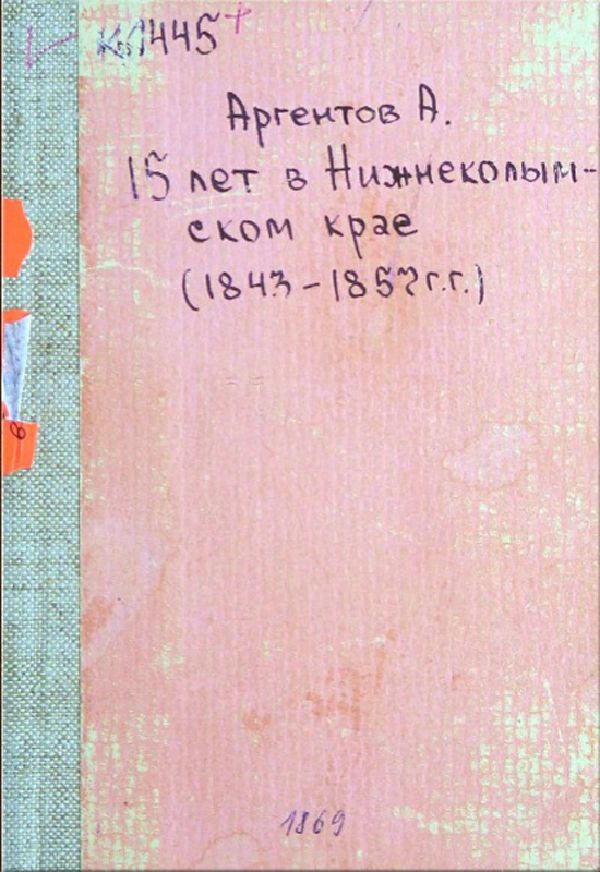 кл1445+
Аргентов А.
15 лет в Нижнеколым-
ском крае
(1843-1857г.г.)
1869